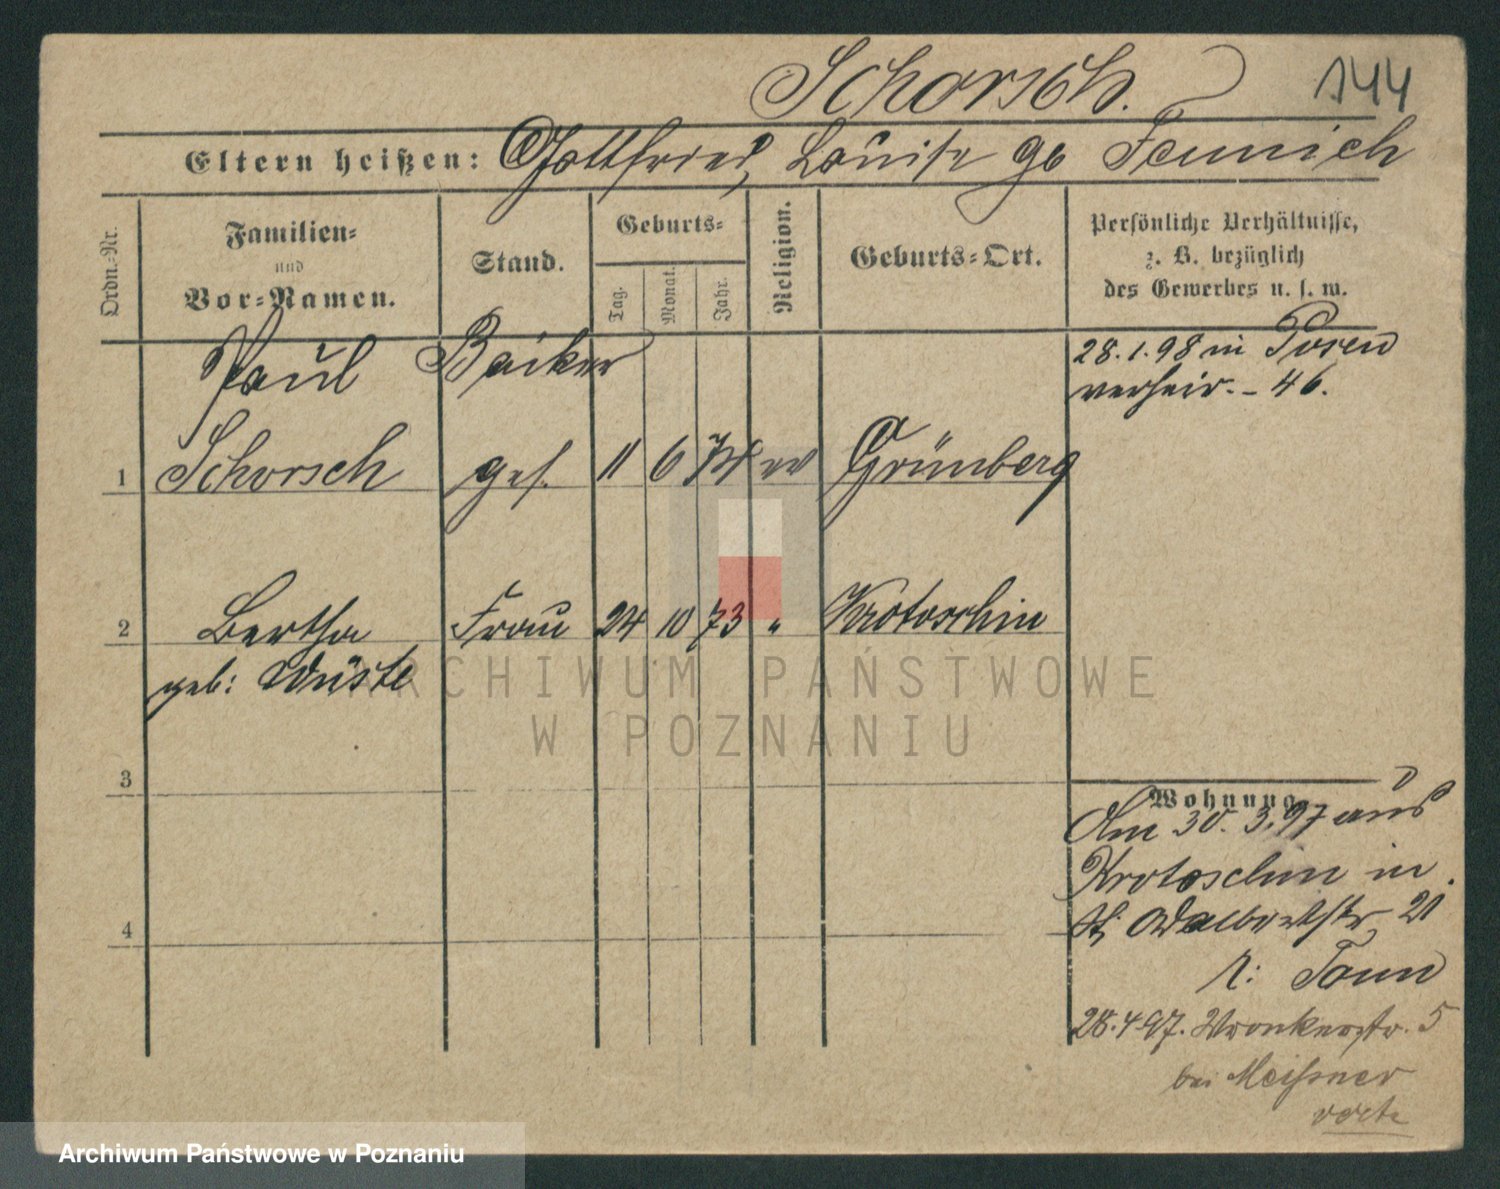 Schorsch.
144
Eltern heißen: Gottfried, Louise gb
Ordn.-Nr.
Familien-
und
Vor-Namen.
Stand.
Geburts-
Tag.
Monat.
Jahr.
Religion.
Geburts-Ort.
Persönliche Verhältnisse,
z. B. bezüglich
des Gewerbes u. s. w.
Paul Bäcker
1 Schorsch ges. 11 6 74 ev Grünberg
28.1.98 in Posen
verheir. - 46.
2 Bertha Frau 24 10 73 " Krotoschin
geb: Wüste
3
4
Wohnung
Am 30. 3. 97 aus
Krotoschin in
St. Adalbertstr 21
28.4.97. Wronkerstr. 5
bei Meißner
ARCHIWUM PAŃSTWOWE
W POZNANIU
Archiwum Państwowe w Poznaniu